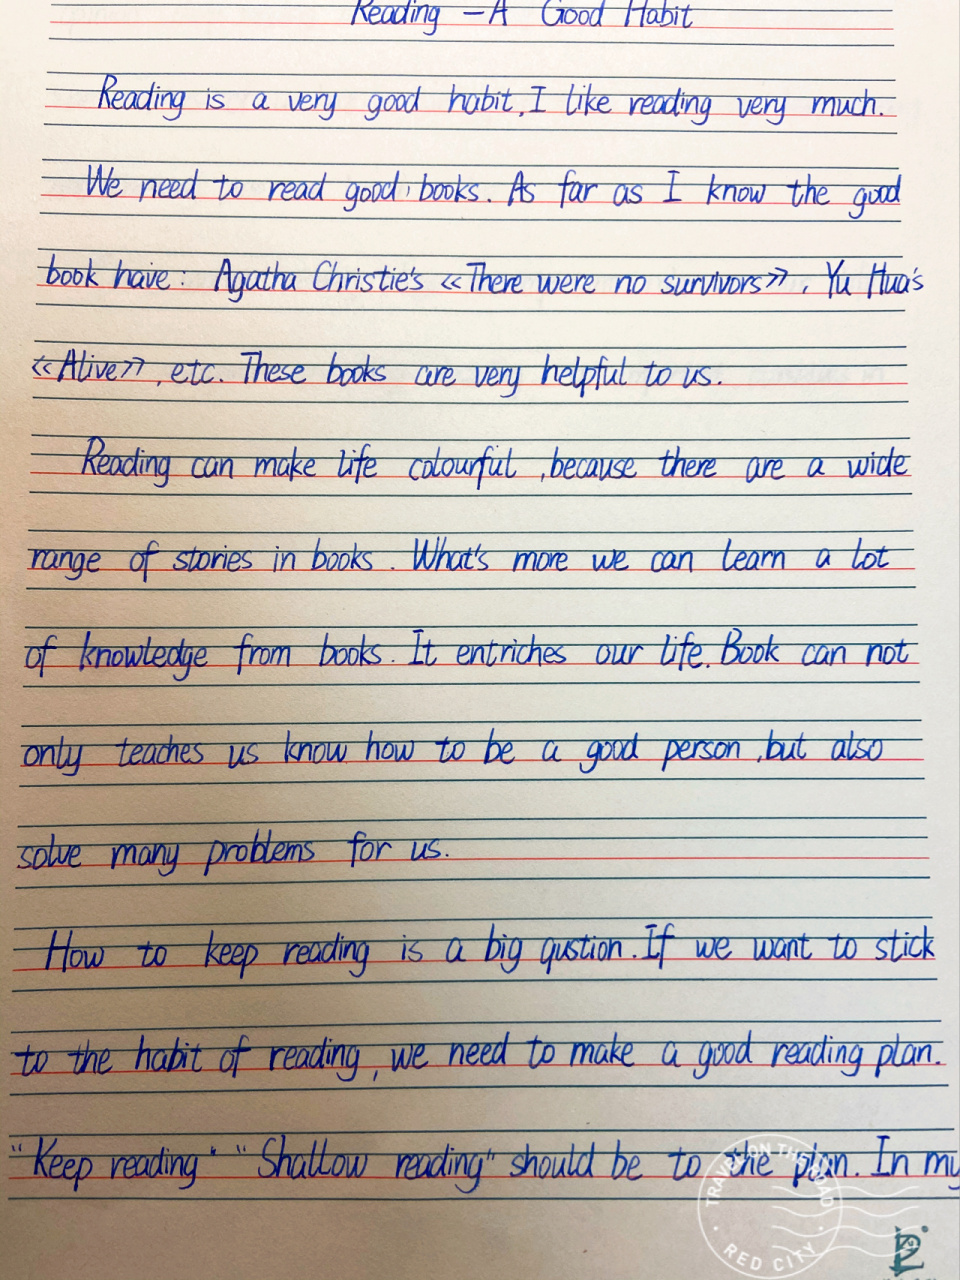 Reading - A Good Habit
Reading is a very good habit, I like reading very much.
We need to read good, books. As far as I know the good
book have: Agatha Christie's 《There were no survivors》, Yu Hua's
《Alive》, etc. These books are very helpful to us.
Reading can make life colourful, because there are a wide
range of stories in books. What's more we can learn a lot
of knowledge from books. It entriches our life. Book can not
only teaches us know how to be a good person, but also
solve many problems for us.
How to keep reading is a big qustion. If we want to stick
to the habit of reading, we need to make a good reading plan.
"Keep reading" "Shallow reading" should be to the plan. In my
TRAVEL ON THE ROAD
RED CITY